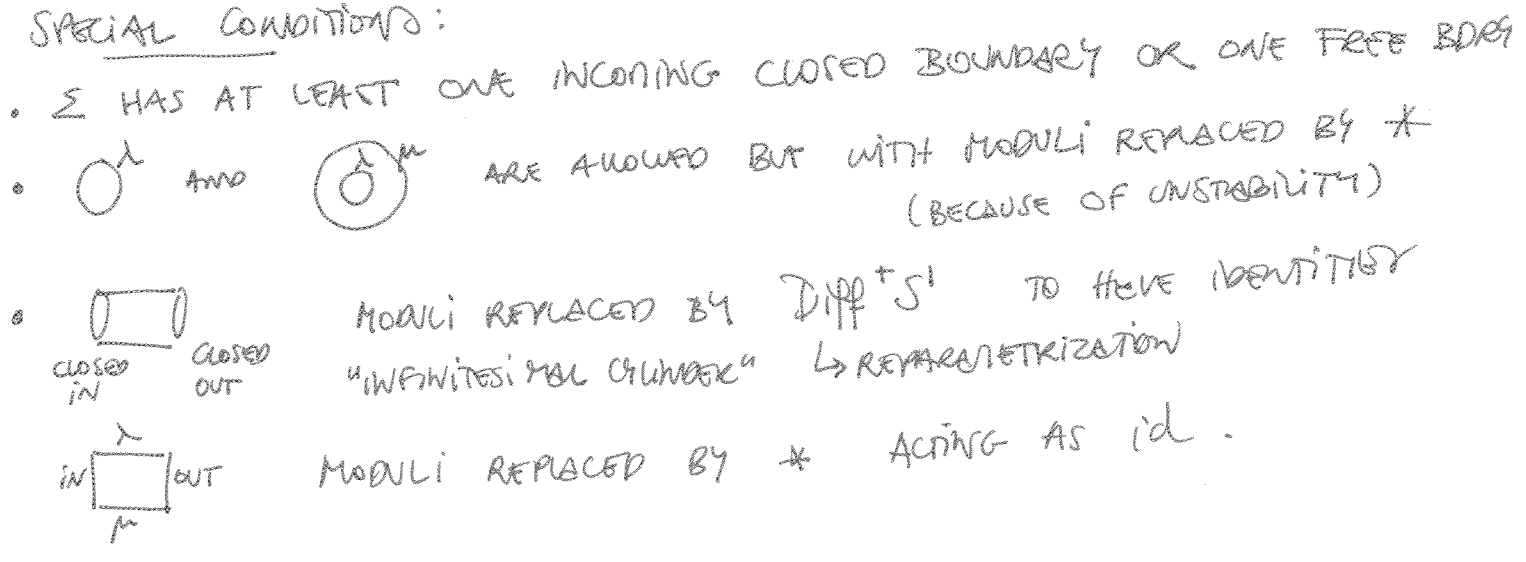 SPECIAL CONDITIONS:
• Σ HAS AT LEAST ONE INCOMING CLOSED BOUNDARY OR ONE FREE BDRY
• λ AND λ μ ARE ALLOWED BUT WITH MODULI REPLACED BY *
(BECAUSE OF UNSTABILITY)
• MODULI REPLACED BY Diff⁺S¹ TO HAVE IDENTITIES
CLOSED IN CLOSED OUT "INFINITESIMAL CYLINDER" ↳ REPARAMETRIZATION
λ
IN OUT MODULI REPLACED BY * ACTING AS id.
μ